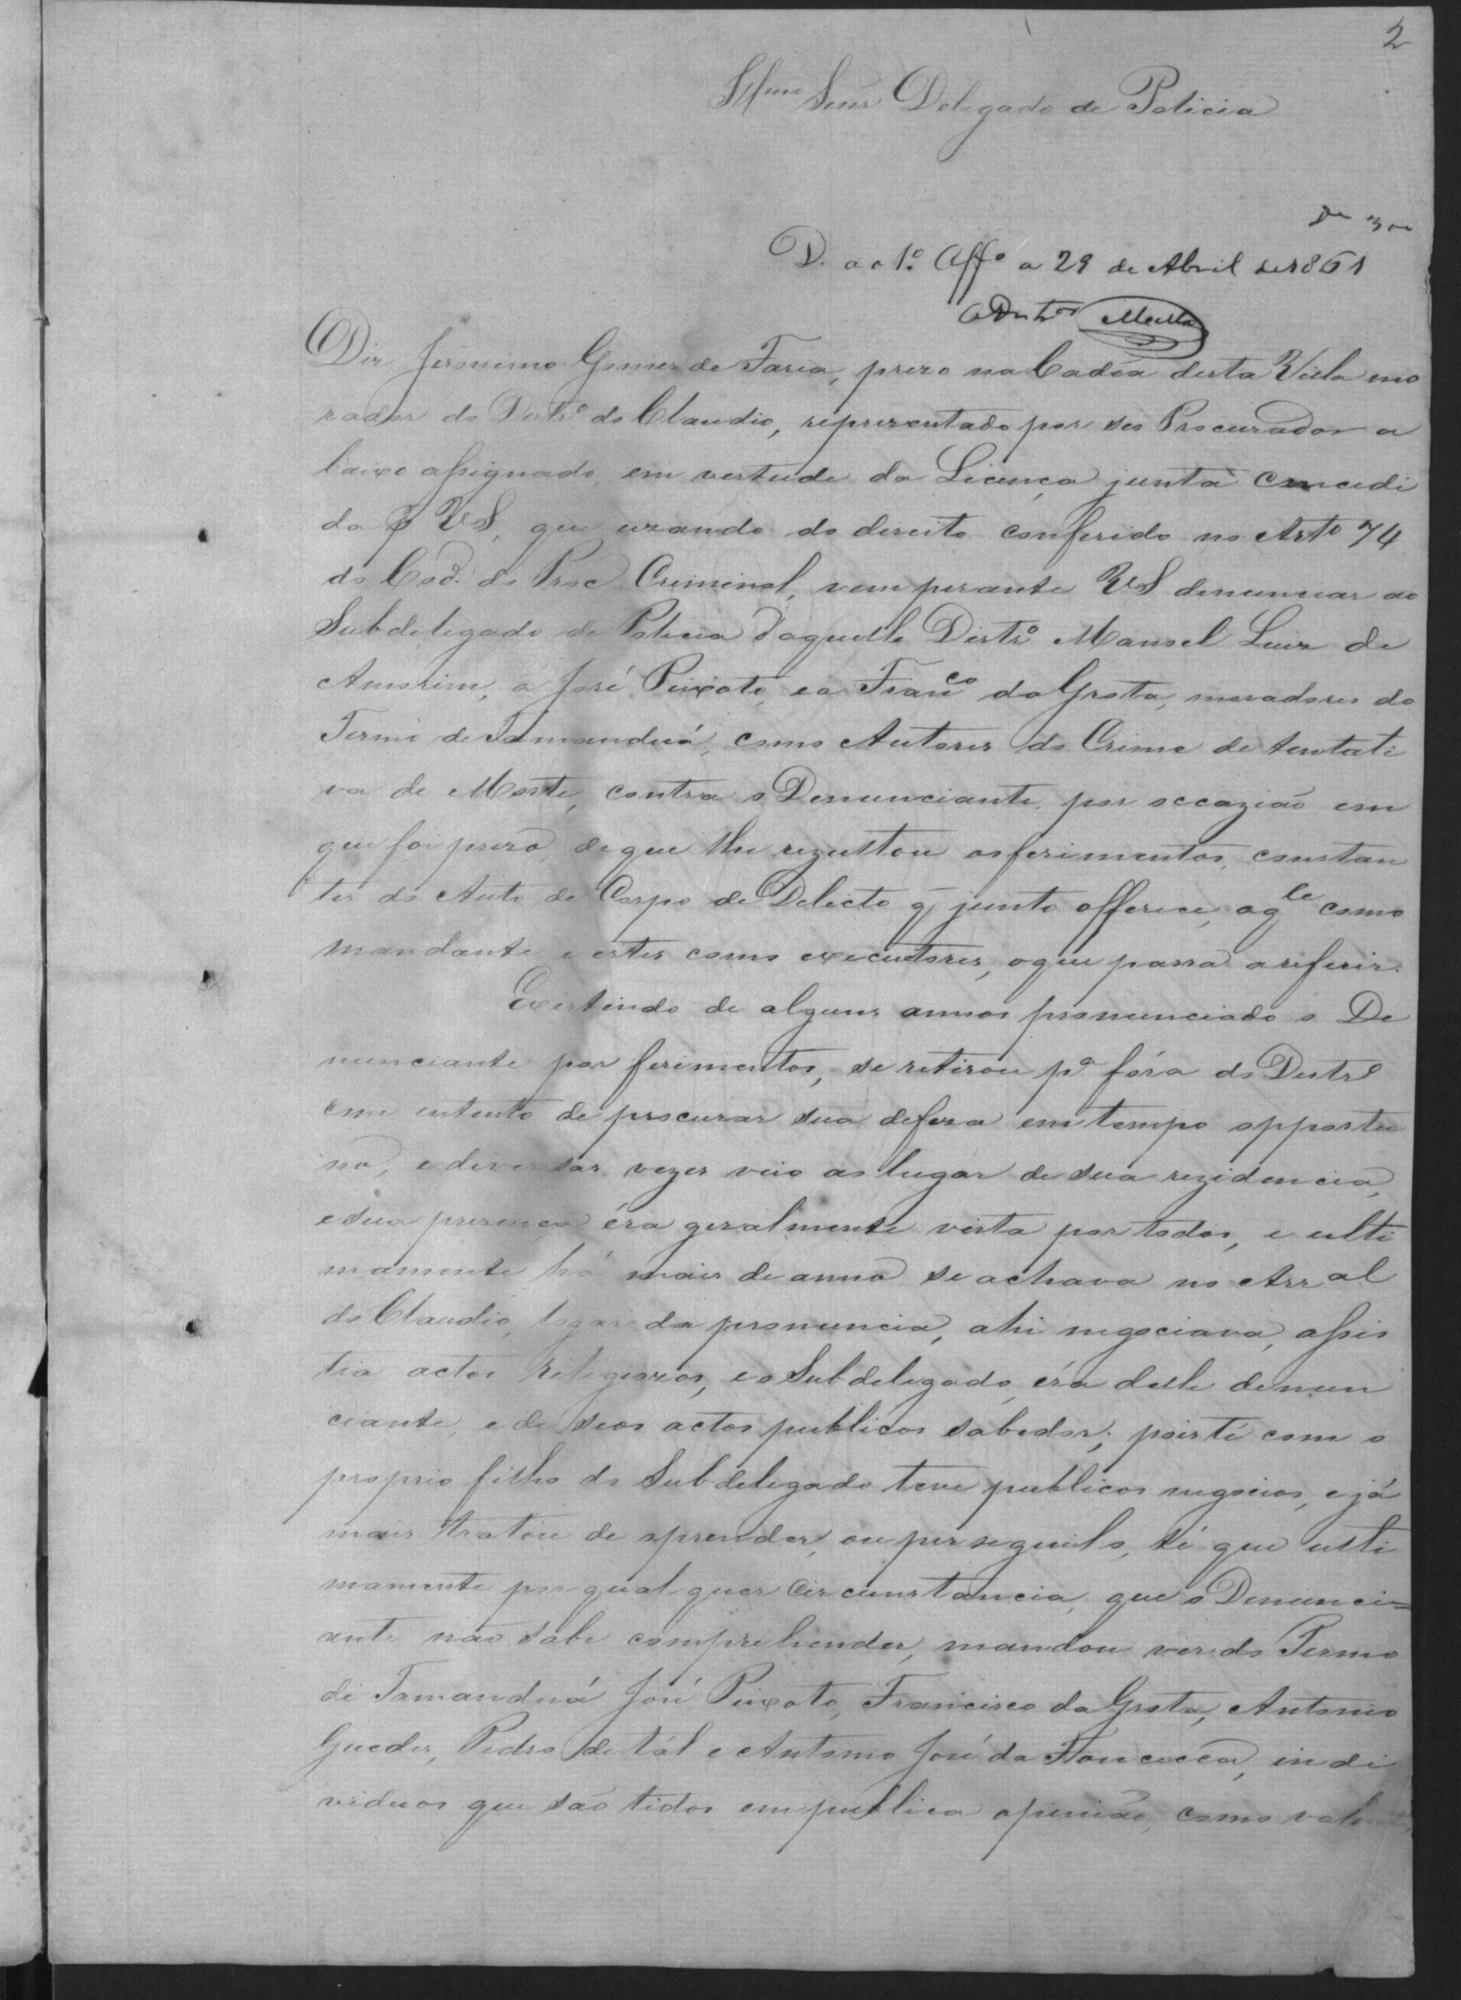 2
Illmo Senr Delegado de Policia
D. ao 1º Offº a 29 de Abril de 1861
Diz Jeronimo Gomes de Faria, prezo na Cadêa desta Villa mo
rador do Distrº do Claudio, reprezentado por seo Procurador a
baixo assignado, em vertude da Licença junta concedi
da p VS, que uzando do direito conferido no Artº 74
do Cod. do Proc Criminal, vem perante VS denunciar ao
Subdelegado de Policia daquelle Distrº Manoel Luiz de
Amorim, a José Peixoto, e a Franco da Grota, moradores do
Termo de Tamanduá, como Autores do Crime de tentati
va de Morte, contra o Denunciante, por occazião em
que foi prezo, de que lhe rezultou os ferimentos, constan
tes do Auto de Corpo de Delicto q junto offerece, aqle como
mandante e estes como executores, o que passa a referir.
Existindo de alguns annos pronunciado o De
nunciante por ferimentos, se retirou pª fóra do Distrº
com intento de procurar sua defeza em tempo opportu
no, e diversas vezes veio ao lugar de sua rezidencia,
e sua prezença éra geralmente vista por todos, e ulti
mamente há mais de anno se achava no Arral
do Claudio, logar da pronuncia, ahi negociava, assis
tia actos religiozos, e o Subdelegado éra delle denun
ciante, e de seos actos publicos sabedor; pois té com o
proprio filho do Subdelegado teve publicos negocios, e já
mais tratou de oprender, ou perseguilo, té que ulti
mamente por qual quer circunstancia, que o Denunci=
ante não sabe comprehender, mandou vir do Termo
de Tamanduá José Peixoto, Francisco da Grota, Antonio
Guedes, Pedro de tál e Antonio José da Fonceca, indi
viduos que são tidos em publica opinião, como